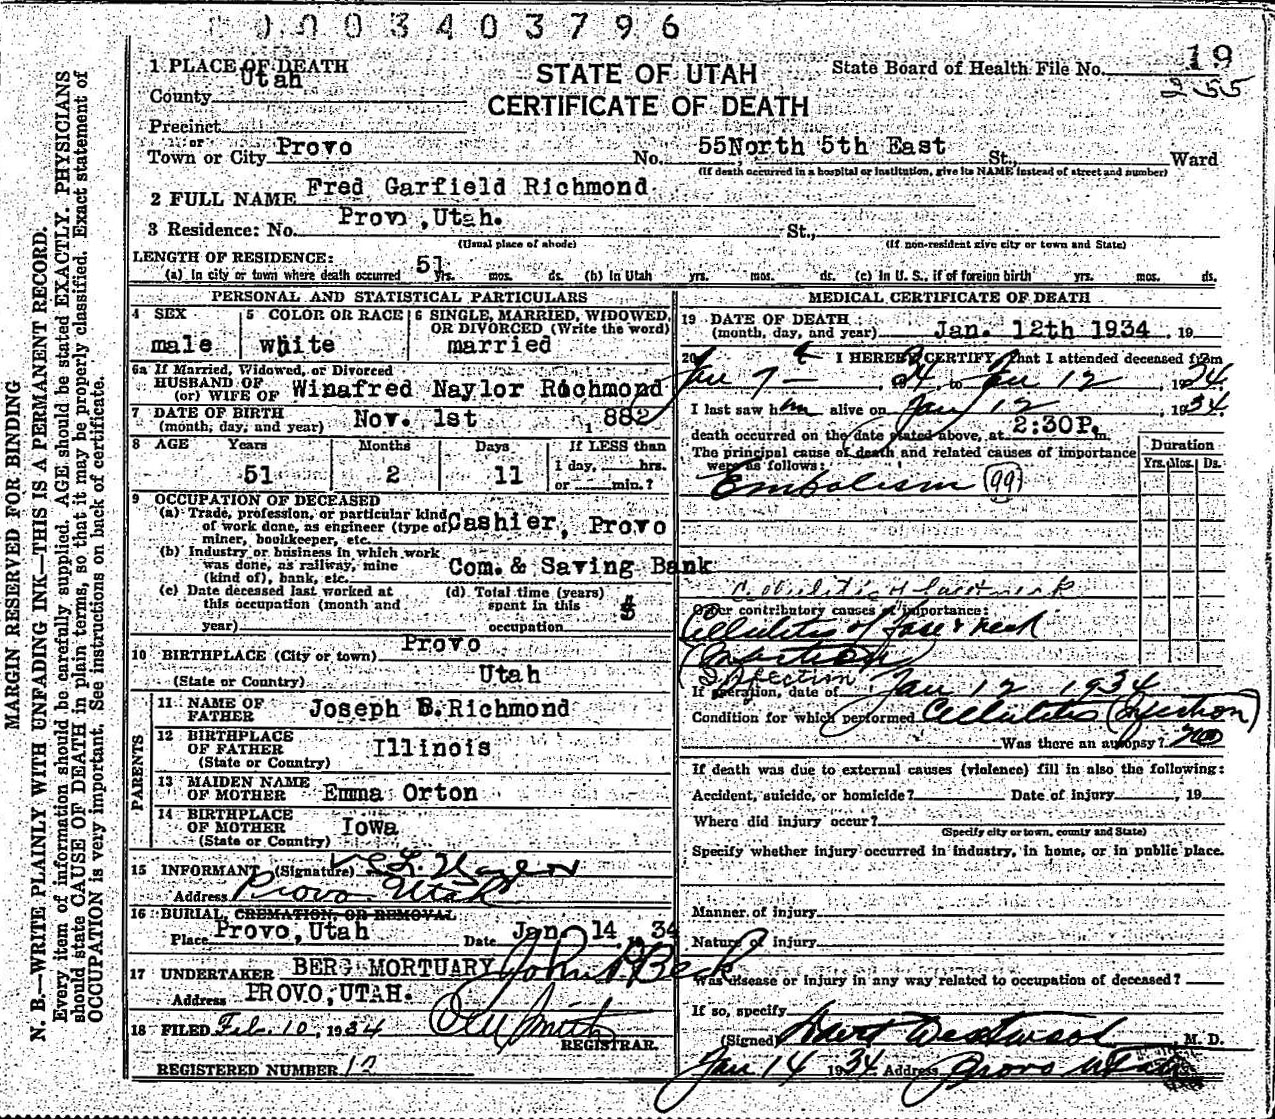 0003403796
1 PLACE OF DEATH
County Utah
STATE OF UTAH
CERTIFICATE OF DEATH
State Board of Health File No. 19
255
Precinct
or
Town or City Provo No. 55North 5th East St., Ward
(If death occurred in a hospital or institution, give its NAME instead of street and number)
2 FULL NAME Fred Garfield Richmond
3 Residence: No. Provo ,Utah. St.,
(Usual place of abode) (If non-resident give city or town and State)
LENGTH OF RESIDENCE:
(a) In city or town where death occurred 51 yrs. mos. ds. (b) In Utah yrs. mos. ds. (c) In U. S., if of foreign birth yrs. mos. ds.
PERSONAL AND STATISTICAL PARTICULARS
4 SEX male
5 COLOR OR RACE white
6 SINGLE, MARRIED, WIDOWED, OR DIVORCED (Write the word) married
6a If Married, Widowed, or Divorced
HUSBAND OF
(or) WIFE OF Winafred Naylor Richmond
7 DATE OF BIRTH
(month, day, and year) Nov. 1st 1882
8 AGE Years Months Days If LESS than
51 2 11 1 day, hrs.
or min.?
9 OCCUPATION OF DECEASED
(a) Trade, profession, or particular kind
of work done, as engineer (type of
miner, bookkeeper, etc. Cashier, Provo
(b) Industry or business in which work
was done, as railway, mine
(kind of), bank, etc. Com. & Saving Bank
(c) Date deceased last worked at
this occupation (month and
year)
(d) Total time (years)
spent in this
occupation
10 BIRTHPLACE (City or town) Provo
(State or Country) Utah
PARENTS
11 NAME OF
FATHER Joseph B.Richmond
12 BIRTHPLACE
OF FATHER Illinois
(State or Country)
13 MAIDEN NAME
OF MOTHER Emma Orton
14 BIRTHPLACE
OF MOTHER Iowa
(State or Country)
15 INFORMANT (Signature)
Address Provo Utah
16 BURIAL, CREMATION, OR REMOVAL
Place Provo,Utah Date Jan. 14, 1934
17 UNDERTAKER BERG MORTUARY John P Beck
Address PROVO,UTAH.
18 FILED Feb. 10, 1934 Smith
REGISTRAR.
REGISTERED NUMBER
MEDICAL CERTIFICATE OF DEATH
19 DATE OF DEATH
(month, day, and year) Jan. 12th 1934, 19
20 I HEREBY CERTIFY, that I attended deceased from
Jan 7, 34, to Jan 12, 1934.
I last saw him alive on Jan 12, 1934.
death occurred on the date stated above, at 2:30P. m.
The principal cause of death and related causes of importance
were as follows:
Duration
Yrs. Mos. Ds.
Embolism (99)
Other contributory causes of importance:
Cellulitis of face & neck
(Infection)
Infection
If operation, date of Jan 12 1934
Condition for which performed Cellulitis (Infection)
Was there an autopsy? no
If death was due to external causes (violence) fill in also the following:
Accident, suicide, or homicide? Date of injury, 19
Where did injury occur?
(Specify city or town, county and State)
Specify whether injury occurred in industry, in home, or in public place.
Manner of injury
Nature of injury
Was disease or injury in any way related to occupation of deceased?
If so, specify
(Signed) Westwood M. D.
Jan 14 1934 Address Provo Utah
MARGIN RESERVED FOR BINDING
N. B.—WRITE PLAINLY WITH UNFADING INK—THIS IS A PERMANENT RECORD.
Every item of information should be carefully supplied. AGE should be stated EXACTLY. PHYSICIANS
should state CAUSE OF DEATH in plain terms, so that it may be properly classified. Exact statement of
OCCUPATION is very important. See instructions on back of certificate.